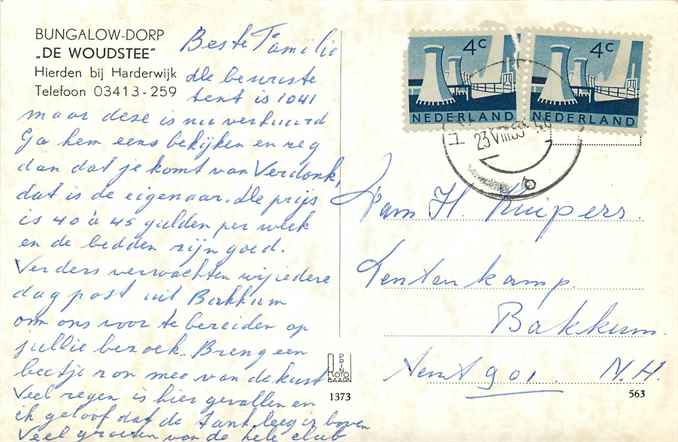 BUNGALOW-DORP
„DE WOUDSTEE"
Hierden bij Harderwijk
Telefoon 03413-259
Beste Familie
De bewuste
tent is 1041
maar deze is nu verhuurd
Ga hem eens bekijken en zeg
dan dat je komt van Verdonk,
dat is de eigenaar. De prijs
is 40 à 45 gulden per week
en de bedden zijn goed.
Verders verwachten wij iedere
dag post uit Bakkum
om ons voor te bereiden op
jullie bezoek. Breng een
beetje zon mee van de kust
Veel regen is hier gevallen en
ik geloof dat de tank leeg is boven
Veel groeten van de hele club
4c
NEDERLAND
4c
NEDERLAND
23 VIII
6
Fam H. Kuipers.
Tentenkamp.
Bakkum.
Tent 901. N.H.
1373
563